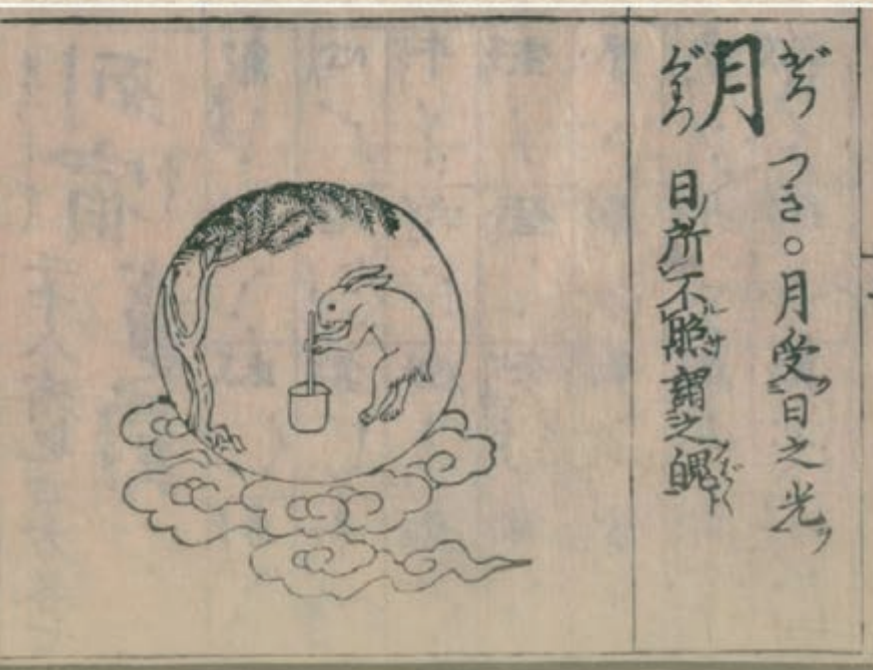 月
ぐわつ
つき○月受日之光ヲ
日ノ所不照謂之魄